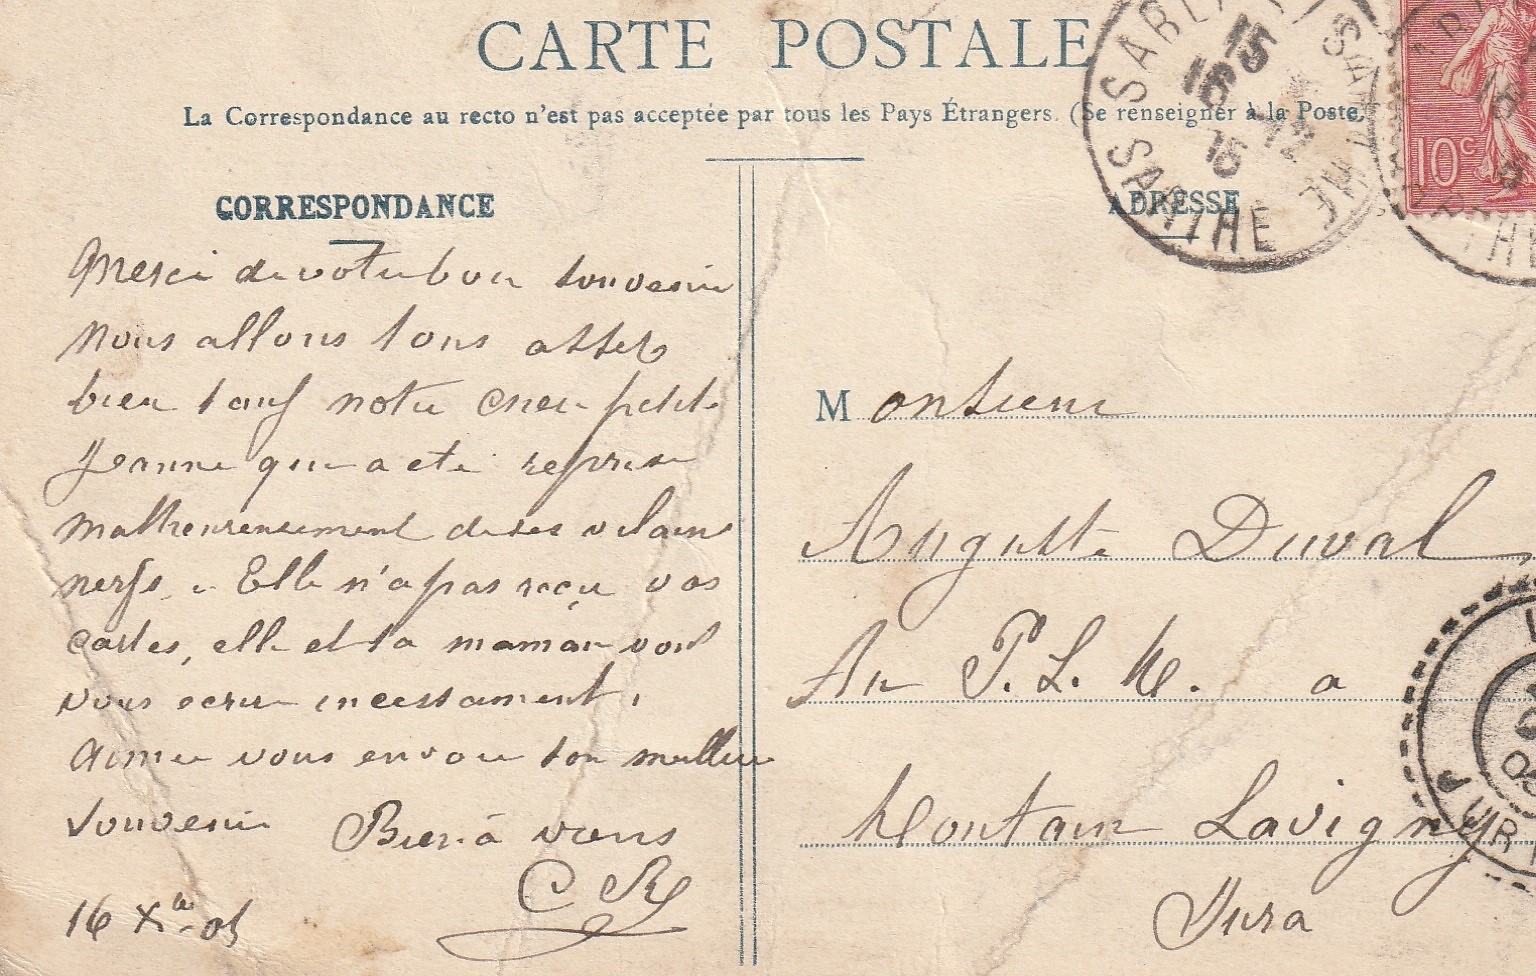 CARTE POSTALE
La Correspondance au recto n'est pas acceptée par tous les Pays Étrangers. (Se renseigner à la Poste.)
CORRESPONDANCE
Merci de votre bon souvenir
Nous allons tous assez
bien sauf notre chère petite
Jeanne qui a été reprise
malheureusement de ses vilains
nerfs. Elle n'a pas reçu vos
cartes, elle et sa maman vont
vous ecrire incessament.
Aimée vous envoie son meilleur
souvenir Bien à vous
C R
16 Xbre 05
ADRESSE
Monsieur
Auguste Duval
Au P. L. M. a
Montain Lavigny
Jura
SABLE SARTHE
15
16 12
10c
SARTHE
JURA